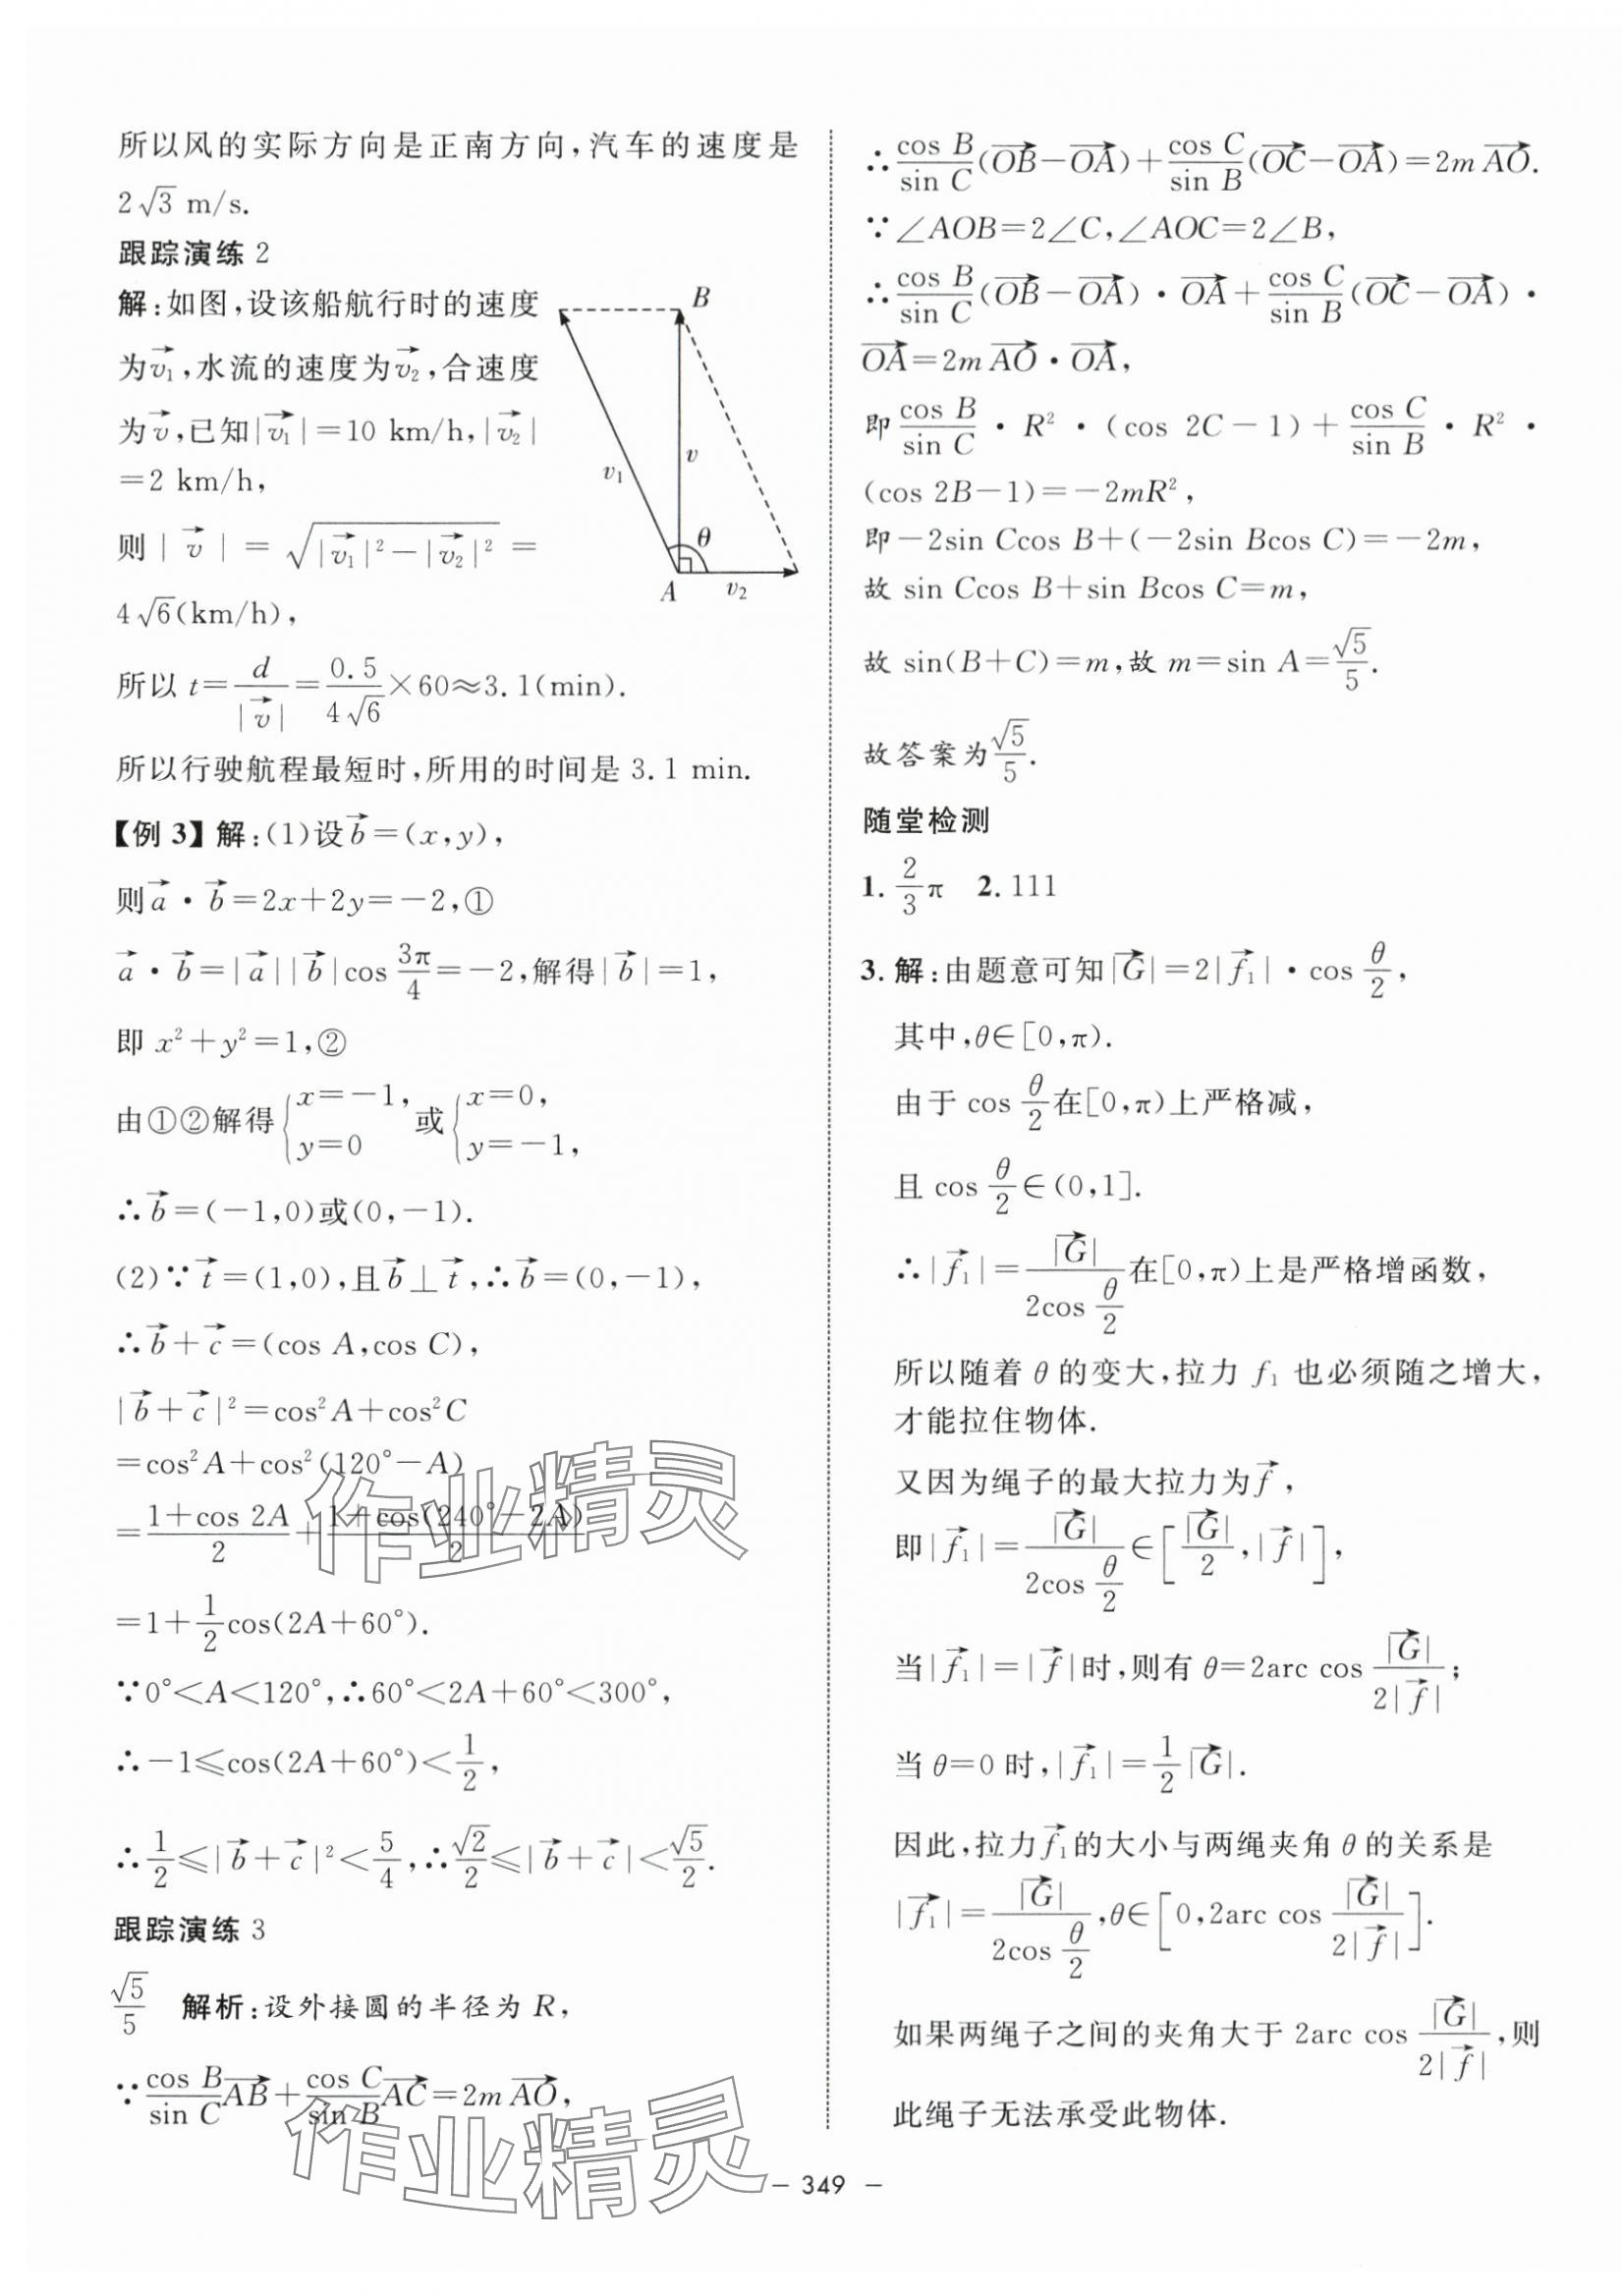 所以风的实际方向是正南方向,汽车的速度是
2√3 m/s.
跟踪演练 2
解:如图,设该船航行时的速度
为v₁→,水流的速度为v₂→,合速度
为v→,已知|v₁→|=10 km/h,|v₂→|
=2 km/h,
则|v→|=√(|v₁→|²-|v₂→|²)=
4√6(km/h),
B
v₁
v
θ
A
v₂
所以 t=d/|v→|=0.5/(4√6)×60≈3.1(min).
所以行驶航程最短时,所用的时间是 3.1 min.
【例 3】解:(1)设b→=(x,y),
则a→·b→=2x+2y=-2,①
a→·b→=|a→||b→|cos 3π/4=-2,解得|b→|=1,
即 x²+y²=1,②
由①②解得{x=-1, y=0 或{x=0, y=-1,
∴b→=(-1,0)或(0,-1).
(2)∵t→=(1,0),且b→⊥t→,∴b→=(0,-1),
∴b→+c→=(cos A,cos C),
|b→+c→|²=cos²A+cos²C
=cos²A+cos²(120°-A)
=(1+cos 2A)/2+(1+cos(240°-2A))/2
=1+1/2cos(2A+60°).
∵0°<A<120°,∴60°<2A+60°<300°,
∴-1≤cos(2A+60°)<1/2,
∴1/2≤|b→+c→|²<5/4,∴√2/2≤|b→+c→|<√5/2.
跟踪演练 3
√5/5 解析:设外接圆的半径为 R,
∵cos B/sin C AB→+cos C/sin B AC→=2m AO→,
∴cos B/sin C(OB→-OA→)+cos C/sin B(OC→-OA→)=2m AO→.
∵∠AOB=2∠C,∠AOC=2∠B,
∴cos B/sin C(OB→-OA→)·OA→+cos C/sin B(OC→-OA→)·
OA→=2m AO→·OA→,
即cos B/sin C·R²·(cos 2C-1)+cos C/sin B·R²·
(cos 2B-1)=-2mR²,
即-2sin Ccos B+(-2sin Bcos C)=-2m,
故 sin Ccos B+sin Bcos C=m,
故 sin(B+C)=m,故 m=sin A=√5/5.
故答案为√5/5.
随堂检测
1. 2/3π 2. 111
3. 解:由题意可知|G→|=2|f₁→|·cos θ/2,
其中,θ∈[0,π).
由于 cos θ/2在[0,π)上严格减,
且 cos θ/2∈(0,1].
∴|f₁→|=|G→|/(2cos θ/2)在[0,π)上是严格增函数,
所以随着 θ 的变大,拉力 f₁ 也必须随之增大,
才能拉住物体.
又因为绳子的最大拉力为f→,
即|f₁→|=|G→|/(2cos θ/2)∈[|G→|/2,|f→|],
当|f₁→|=|f→|时,则有 θ=2arc cos |G→|/(2|f→|);
当 θ=0 时,|f₁→|=1/2|G→|.
因此,拉力f₁→的大小与两绳夹角 θ 的关系是
|f₁→|=|G→|/(2cos θ/2),θ∈[0,2arc cos |G→|/(2|f→|)].
如果两绳子之间的夹角大于 2arc cos |G→|/(2|f→|),则
此绳子无法承受此物体.
作业精灵
作业精灵
- 349 -